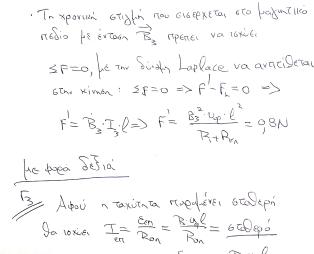 • Τη χρονική στιγμή που εισέρχεται στο μαγνητικό
πεδίο με ένταση B⃗₃ πρέπει να ισχύει
ΣF=0, με την δύναμη Laplace να αντιτίθεται
στην κίνηση: ΣF=0 => F'-F₁=0 =>
F' = B₃·I₃·l => F' = B₃²·υ·l² / R₁+R = 0,8N
με φορά δεξιά
Γ₃ Αφού η ταχύτητα παραμένει σταθερή
θα ισχύει I_επ = E_επ / R_ολ = B·υ·l / R_ολ = σταθερό